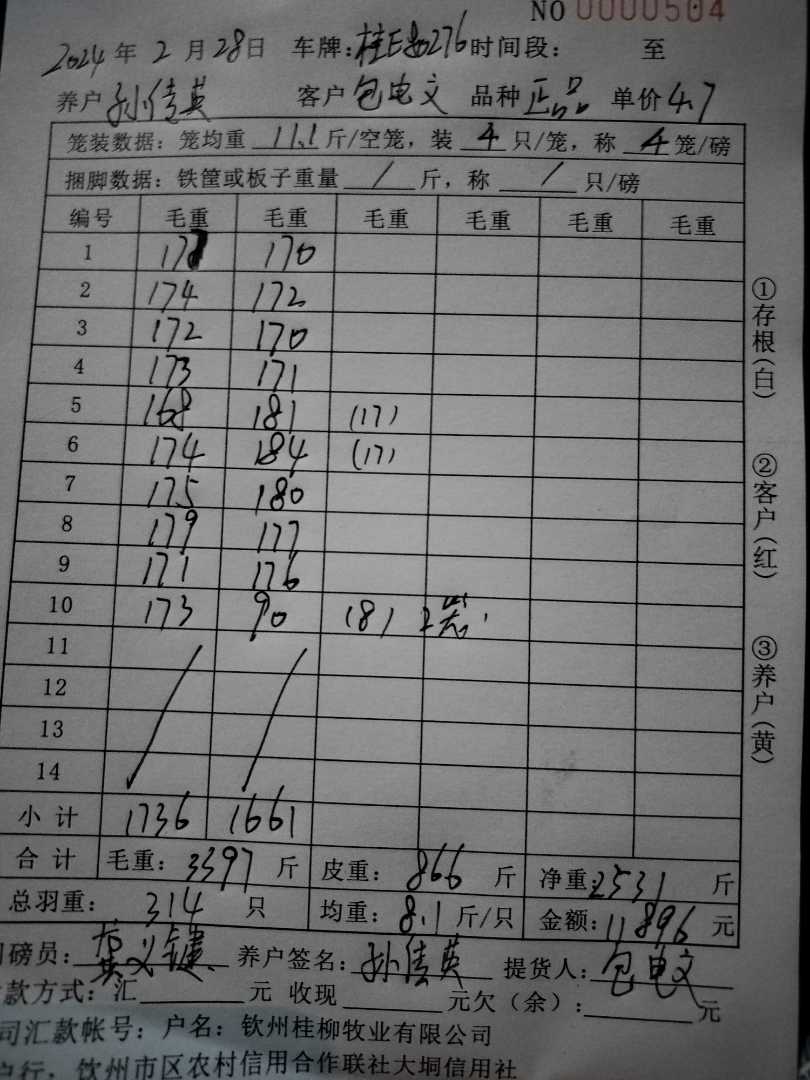 NO 0000504
2024年 2 月 28日 车牌:桂E 276时间段: 至
养户 孙倩英 客户 包电文 品种 正品 单价 4.7
笼装数据:笼均重 11.1 斤/空笼,装 4 只/笼,称 4 笼/磅
捆脚数据:铁筐或板子重量 / 斤,称 / 只/磅
编号 毛重 毛重 毛重 毛重 毛重 毛重
1 177 170
2 174 172
3 172 170
4 173 171
5 168 181 (17)
6 174 184 (17)
7 175 180
8 179 177
9 171 176
10 173 90 (8) 2笼
11
12
13
14
小计 1736 1661
合计 毛重: 3397 斤 皮重: 866 斤 净重: 2531 斤
总羽重: 314 只 均重: 8.1 斤/只 金额: 11896 元
磅员: 养户签名: 孙倩英 提货人: 包电文
款方式:汇 元 收现 元欠(余): 元
司汇款帐号:户名:钦州桂柳牧业有限公司
户行:钦州市区农村信用合作联社大垌信用社
①存根(白)
②客户(红)
③养户(黄)